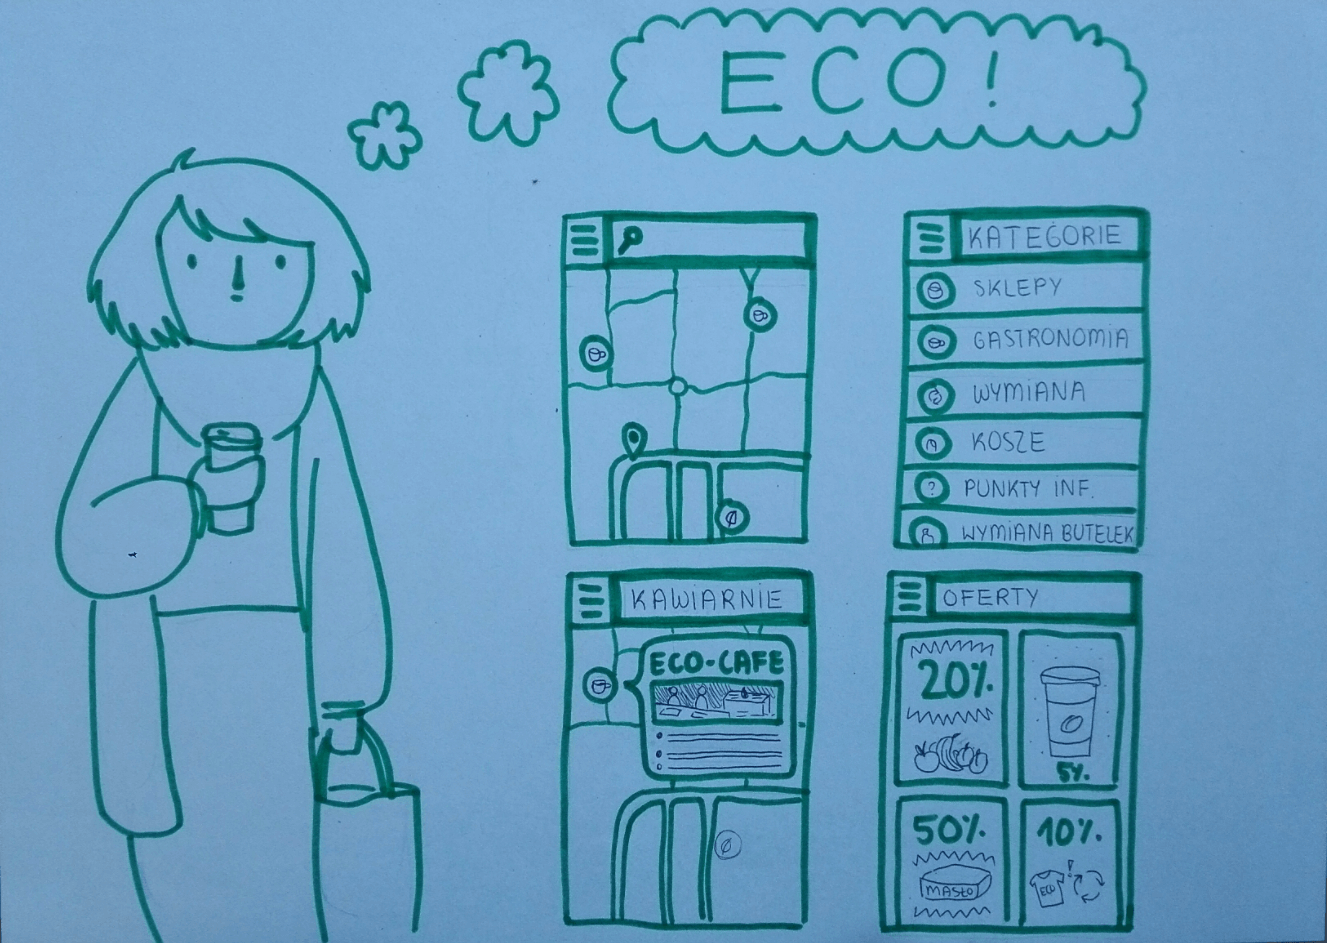 ECO!
KATEGORIE
SKLEPY
GASTRONOMIA
WYMIANA
KOSZE
?
PUNKTY INF.
WYMIANA BUTELEK
KAWIARNIE
ECO-CAFE
OFERTY
20%
5%
50%
MASŁO
10%
ECO
!